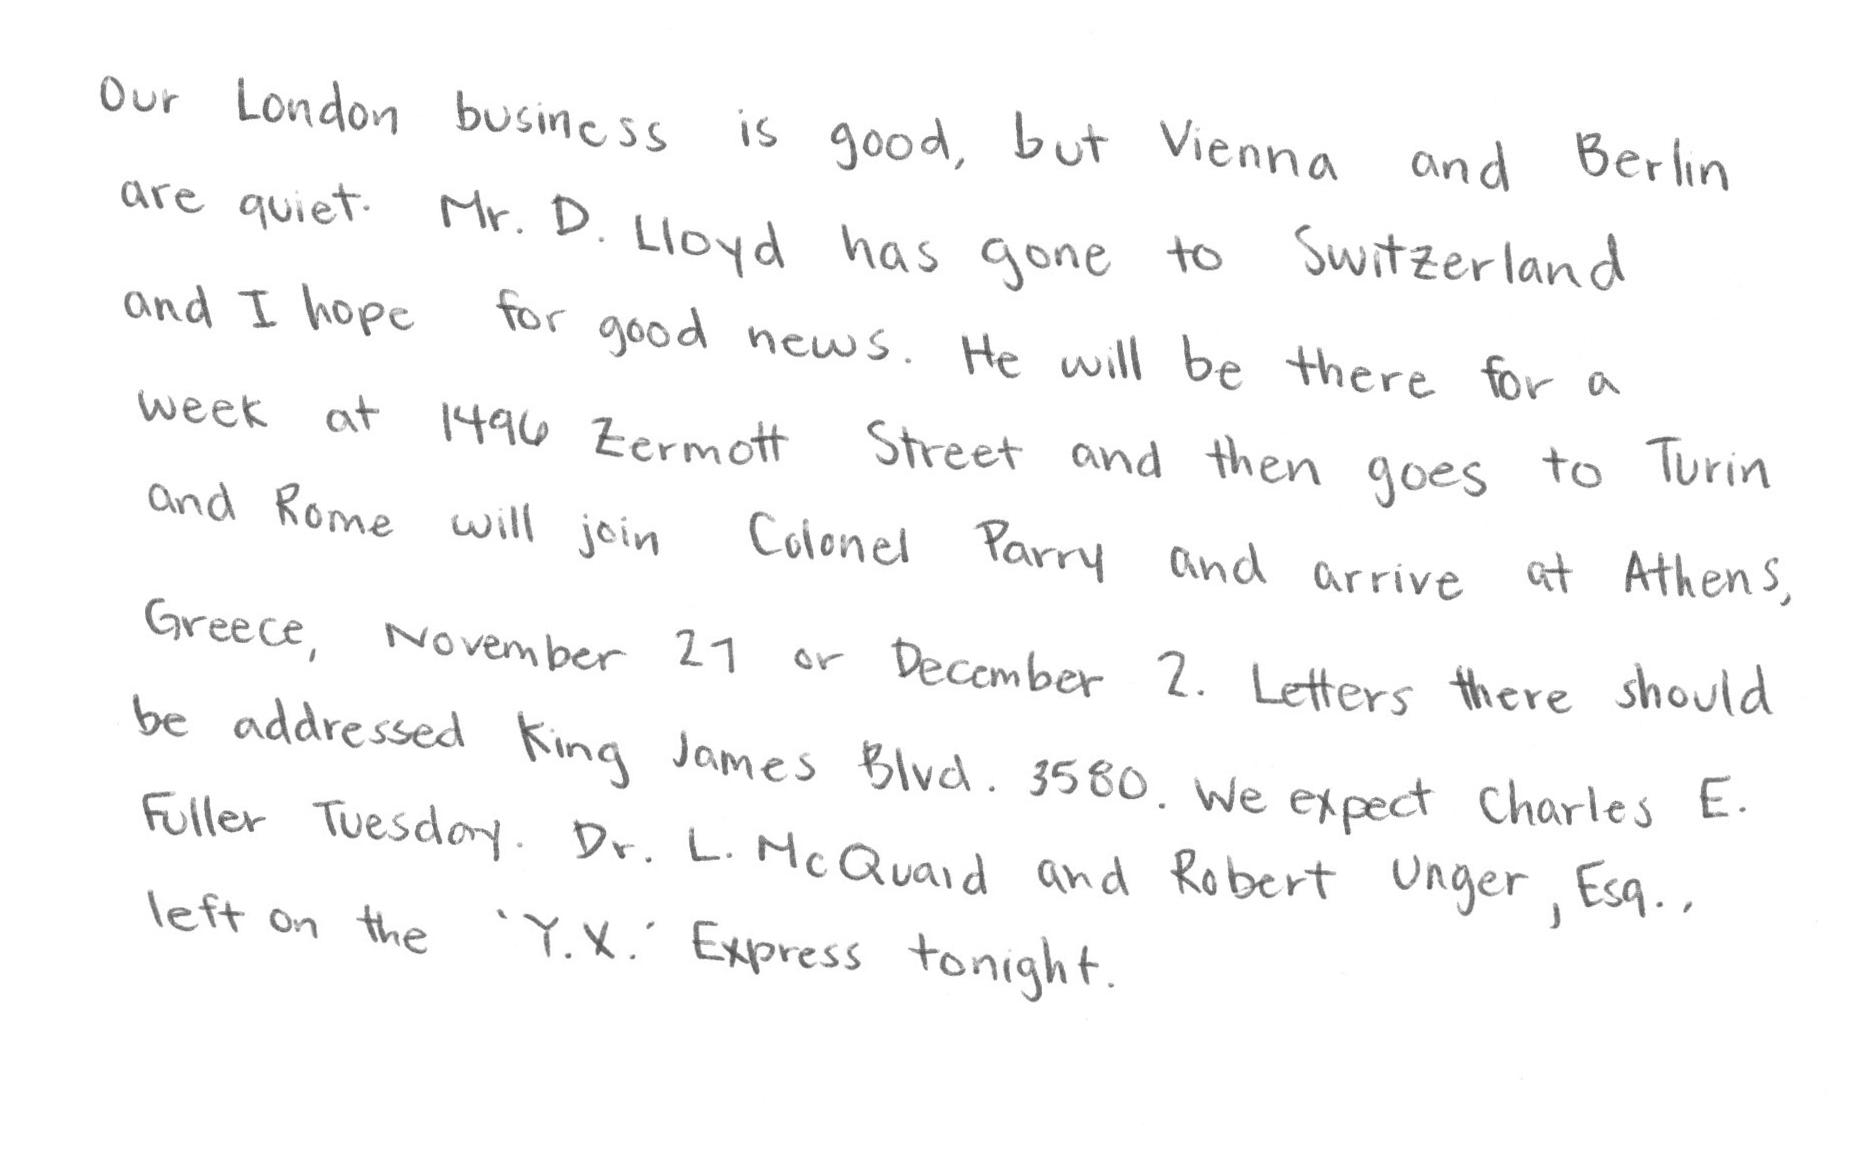 Our London business is good, but Vienna and Berlin
are quiet. Mr. D. Lloyd has gone to Switzerland
and I hope for good news. He will be there for a
week at 1496 Zermott Street and then goes to Turin
and Rome will join Colonel Parry and arrive at Athens,
Greece, November 27 or December 2. Letters there should
be addressed King James Blvd. 3580. We expect Charles E.
Fuller Tuesday. Dr. L. McQuaid and Robert Unger, Esq.,
left on the 'Y.X.' Express tonight.